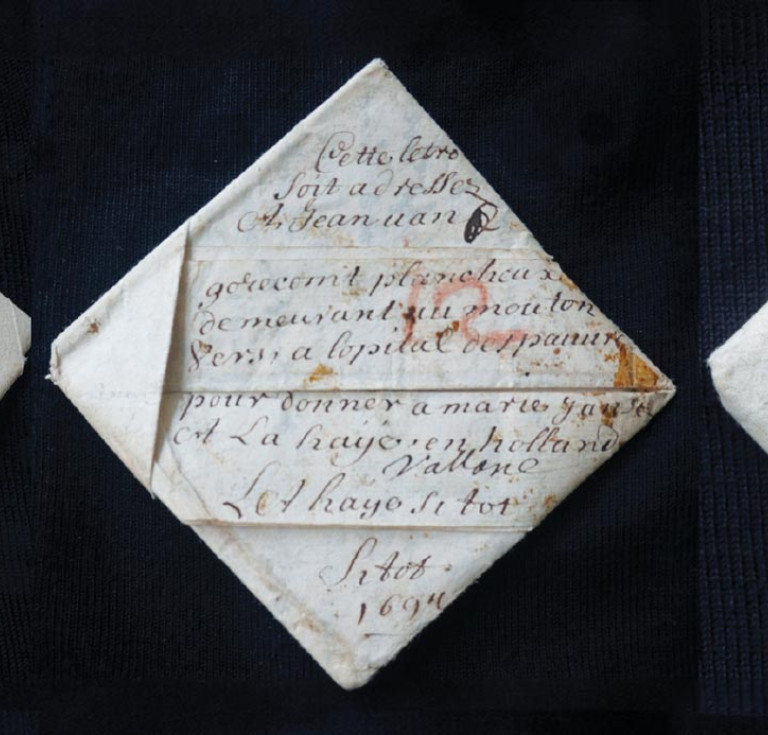 Cette letre
soit adressez
A Jean uan
gorecomt plancheux
demeurant au mouton
Vers a lopital des pauure
pour donner a marie janse
A La haye en holland
Vallone
Let haye si tot
Si tot
169
12